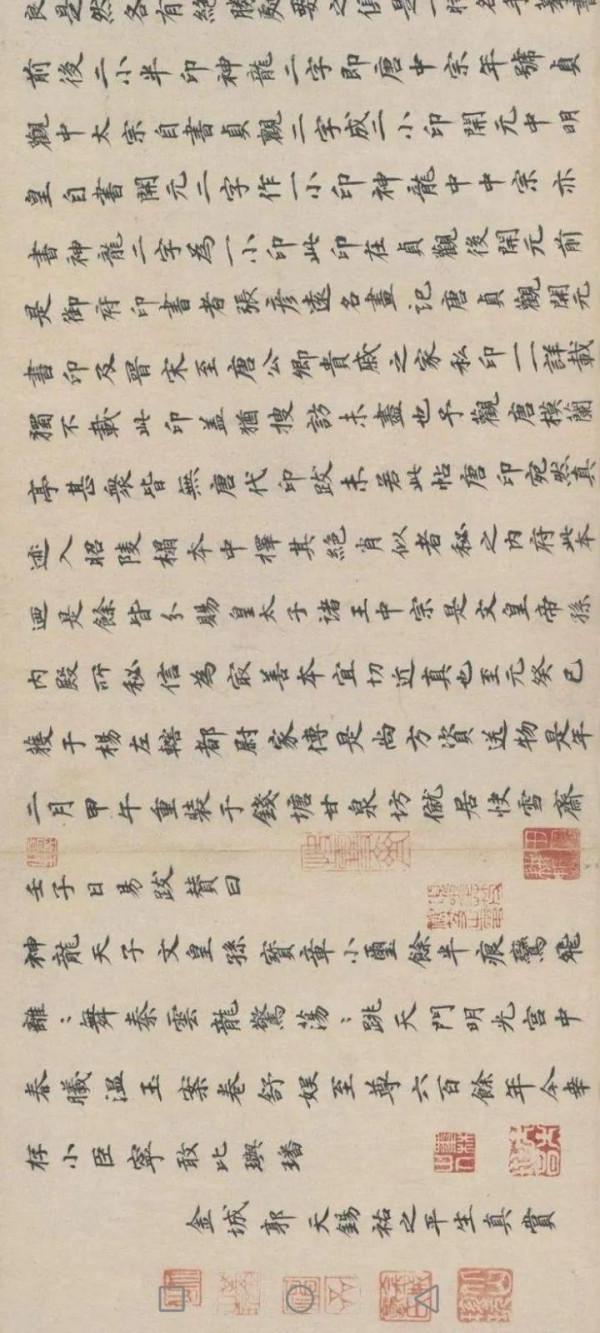 良是然各有絕勝處要之俱是一時名手摹書
前後二小半印神龍二字即唐中宗年號貞
觀中太宗自書貞觀二字成二小印開元中明
皇自書開元二字作一小印神龍中中宗亦
書神龍二字為一小印此印在貞觀後開元前
是御府印書者張彥遠名畫記唐貞觀開元
書印及晉宋至唐公卿貴戚之家私印一一詳載
獨不載此印蓋猶搜訪未盡也予觀唐模蘭
亭甚衆皆無唐代印跋未若此帖唐印宛然真
迹入昭陵搨本中擇其絕肖似者秘之內府此本
迺是餘皆分賜皇太子諸王中宗是文皇帝孫
內殿所秘信為冣善本宜切近真也至元癸巳
獲于楊左轄都尉家傳是尚方資送物是年
二月甲午重裝于錢塘甘泉坊僦居快雪齋
壬子日易跋賛曰
神龍天子文皇孫寶章小璽餘半痕鸞飛
離〻舞秦雲龍驚蕩〻跳天門明光宮中
春曦溫玉案卷舒娛至尊六百餘年今幸
存小臣寧敢比璵璠
金城郭天錫祐之平生真賞